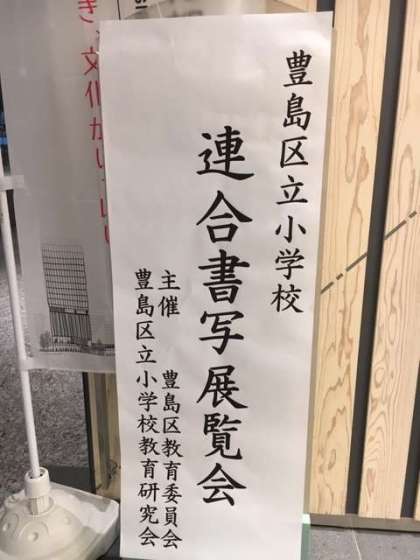 豊島区立小学校
連合書写展覧会
主催　豊島区教育委員会
豊島区立小学校教育研究会